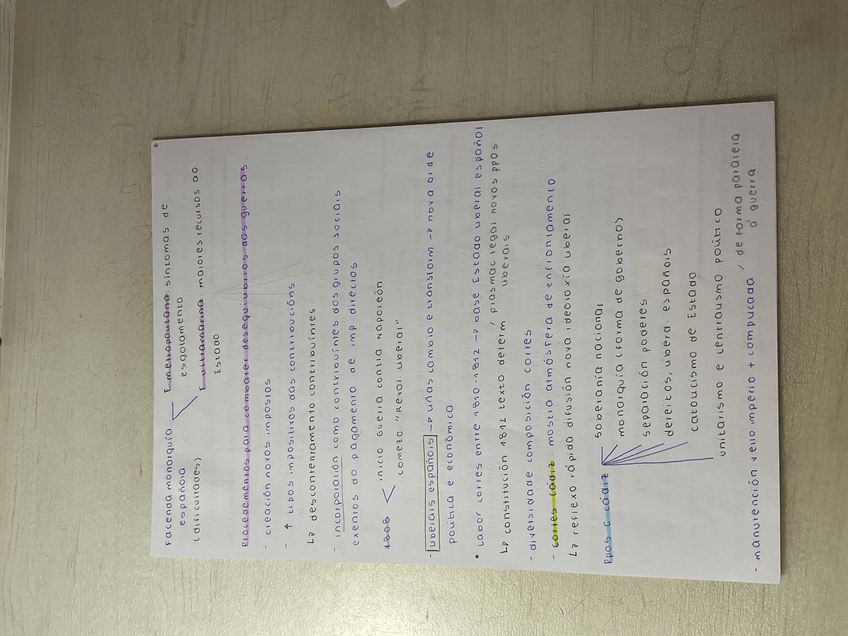 Facenda monarquía
española
(dificultades)
F. metropolitana síntomas de
esgotamento
F. ultramarina maiores recursos ao
Estado
Procedementos para combater desequilibrios das guerras
- creación novos impostos
- ↑ tipos impositivos das contribucións
↳ descontentamento contribuíntes
- incorporación como contribuíntes dos grupos sociais
exentos do pagamento de imp. directos
1808
inicio guerra contra Napoleón
comezo "Revol liberal"
- liberais españois → uñas cambio e transform → nova orde
política e económica
• Labor cortes entre 1810-1812 → base Estado liberal español
↳ constitución 1812 texto determ / plasmac legal novos ppos
liberais
- diversidade composición cortes
- cortes cádiz: mostra atmósfera de enfrontamento
↳ reflexo rápida difusión nova ideoloxía liberal
PPOS C cádiz
soberanía nacional
monarquía (forma de goberno)
separación poderes
dereitos, libera. españois
catolicismo de Estado
unitarismo e centralismo político
- manutención vello imperio + complicada / de forma paralela
á guerra